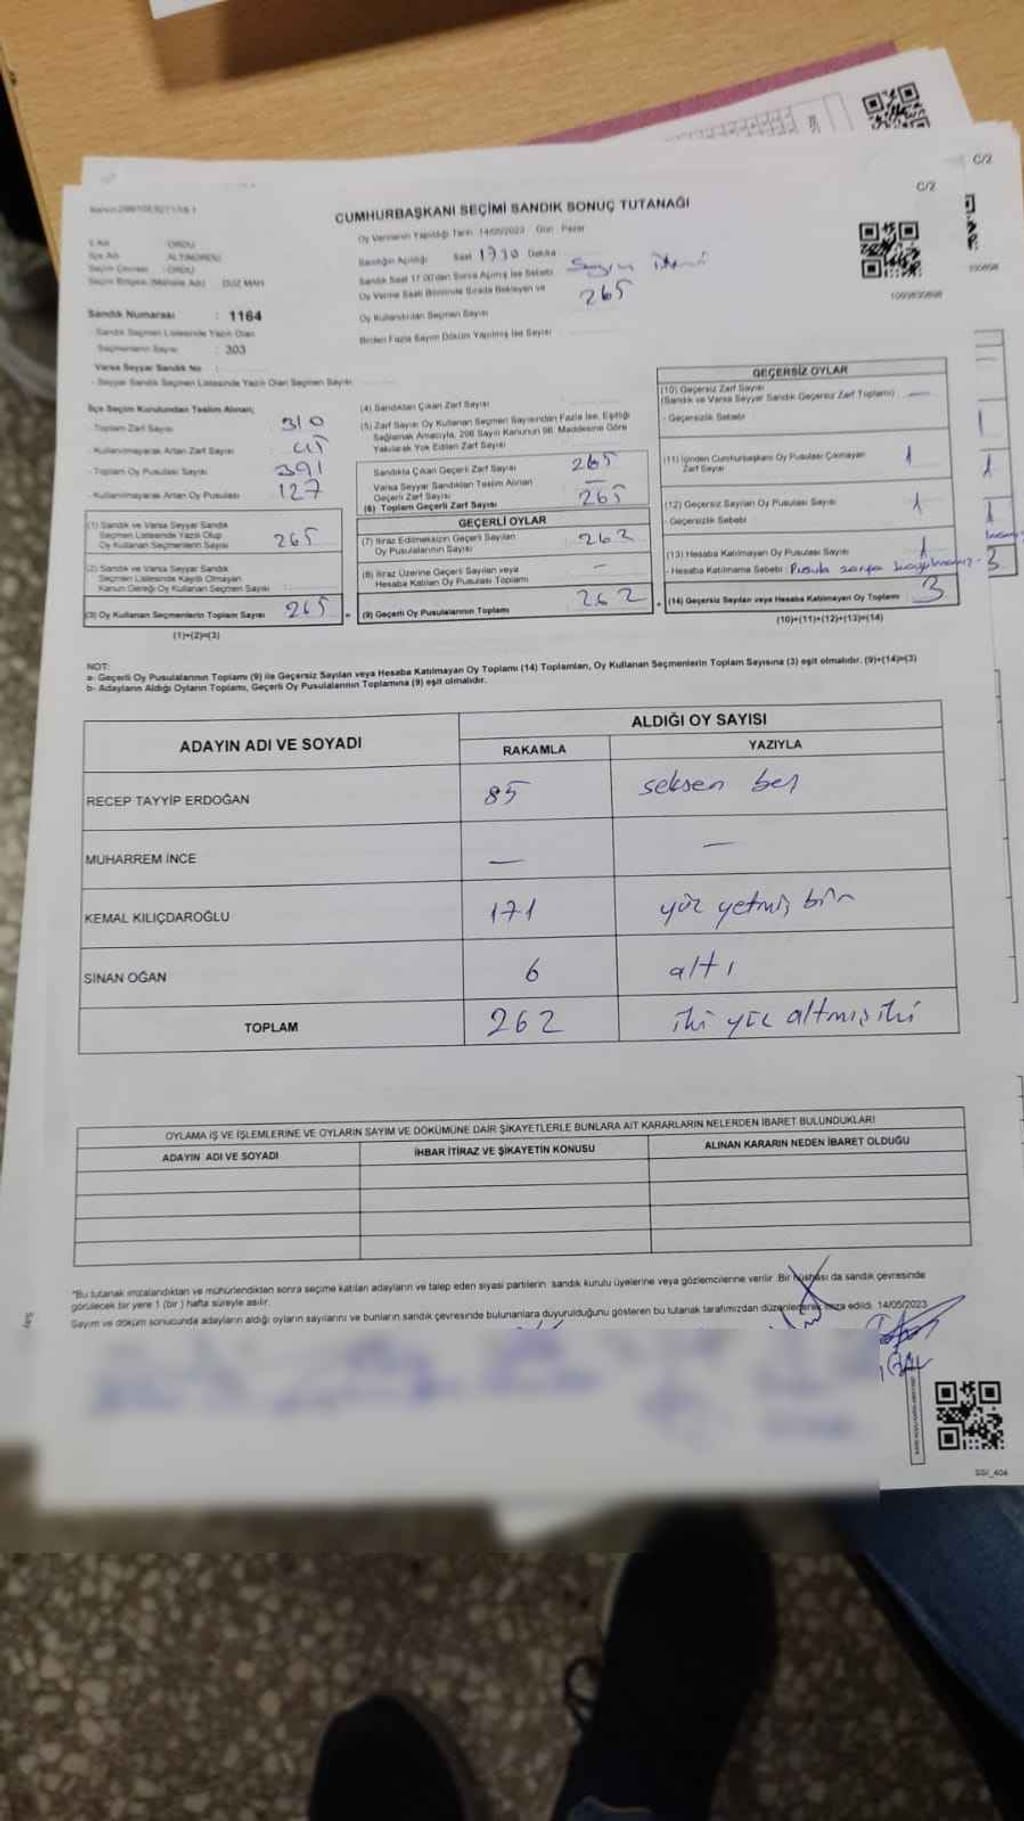 C/2
C/2
CUMHURBAŞKANI SEÇİMİ SANDIK SONUÇ TUTANAĞI
Oy Vermenin Yapıldığı Tarih : 14/05/2023 Gün : Pazar
İl Adı : ORDU
İlçe Adı : ALTINORDU
Seçim Çevresi : ORDU
Sandığın Açıldığı Saat 17 30 Dakika
Sandık Saat 17.00'dan Sonra Açılmış İse Sebebi Sayım
Oy Verme Saati Bitiminde Sırada Bekleyen ve
265
Oy Kullandırılan Seçmen Sayısı
Birden Fazla Sayım Döküm Yapılmış İse Sayısı
Sandık Numarası : 1164
- Sandık Seçmen Listesinde Yazılı Olan
Seçmenlerin Sayısı : 303
Varsa Seyyar Sandık No :
- Seyyar Sandık Seçmen Listesinde Yazılı Olan Seçmen Sayısı
İlçe Seçim Kurulundan Teslim Alınan;
- Toplam Zarf Sayısı 310
- Kullanılmayarak Artan Zarf Sayısı
- Toplam Oy Pusulası Sayısı 391
- Kullanılmayarak Artan Oy Pusulası 127
(1) Sandık ve Varsa Seyyar Sandık
Seçmen Listesinde Yazılı Olup
Oy Kullanan Seçmenlerin Sayısı 265
(2) Sandık ve Varsa Seyyar Sandık
Seçmen Listesinde Kayıtlı Olmayan
Kanun Gereği Oy Kullanan Seçmen Sayısı
(3) Oy Kullanan Seçmenlerin Toplam Sayısı 265 =
(1)+(2)=(3)
(4) Sandıktan Çıkan Zarf Sayısı
(5) Zarf Sayısı Oy Kullanan Seçmen Sayısından Fazla İse, Eşitliği
Sağlamak Amacıyla, 298 Sayılı Kanunun 98. Maddesine Göre
Yakılarak Yok Edilen Zarf Sayısı
Sandıkta Çıkan Geçerli Zarf Sayısı 265
Varsa Seyyar Sandıktan Teslim Alınan
Geçerli Zarf Sayısı —
(6) Toplam Geçerli Zarf Sayısı 265
GEÇERLİ OYLAR
(7) İtiraz Edilmeksizin Geçerli Sayılan
Oy Pusulalarının Sayısı 262
(8) İtiraz Üzerine Geçerli Sayılan veya
Hesaba Katılan Oy Pusulası Toplamı —
(9) Geçerli Oy Pusulalarının Toplamı 262 +
GEÇERSİZ OYLAR
(10) Geçersiz Zarf Sayısı
(Sandık ve Varsa Seyyar Sandık Geçersiz Zarf Toplamı) —
- Geçersizlik Sebebi
(11) İçinden Cumhurbaşkanı Oy Pusulası Çıkmayan
Zarf Sayısı 1
(12) Geçersiz Sayılan Oy Pusulası Sayısı 1
- Geçersizlik Sebebi
(13) Hesaba Katılmayan Oy Pusulası Sayısı 1
- Hesaba Katılmama Sebebi : Pusula
(14) Geçersiz Sayılan veya Hesaba Katılmayan Oy Toplamı 3
(10)+(11)+(12)+(13)=(14)
1
1
1
3
NOT:
a- Geçerli Oy Pusulalarının Toplamı (9) ile Geçersiz Sayılan veya Hesaba Katılmayan Oy Toplamı (14) Toplamları, Oy Kullanan Seçmenlerin Toplam Sayısına (3) eşit olmalıdır. (9)+(14)=(3)
b- Adayların Aldığı Oyların Toplamı, Geçerli Oy Pusulalarının Toplamına (9) eşit olmalıdır.
ADAYIN ADI VE SOYADI
ALDIĞI OY SAYISI
RAKAMLA YAZIYLA
RECEP TAYYİP ERDOĞAN 85 seksen beş
MUHARREM İNCE — —
KEMAL KILIÇDAROĞLU 171 yüz yetmiş bir
SİNAN OĞAN 6 altı
TOPLAM 262 iki yüz altmış iki
OYLAMA İŞ VE İŞLEMLERİNE VE OYLARIN SAYIM VE DÖKÜMÜNE DAİR ŞİKAYETLERLE BUNLARA AİT KARARLARIN NELERDEN İBARET BULUNDUKLARI
ADAYIN ADI VE SOYADI İHBAR İTİRAZ VE ŞİKAYETİN KONUSU ALINAN KARARIN NEDEN İBARET OLDUĞU
*Bu tutanak imzalandıktan ve mühürlendikten sonra seçime katılan adayların ve talep eden siyasi partilerin sandık kurulu üyelerine veya gözlemcilerine verilir. Bir nüshası da sandık çevresinde
görülecek bir yere 1 (bir ) hafta süreyle asılır.
Sayım ve döküm sonucunda adayların aldığı oyların sayılarını ve bunların sandık çevresinde bulunanlara duyurulduğunu gösteren bu tutanak tarafımızdan düzenlenerek imza edildi. 14/05/2023